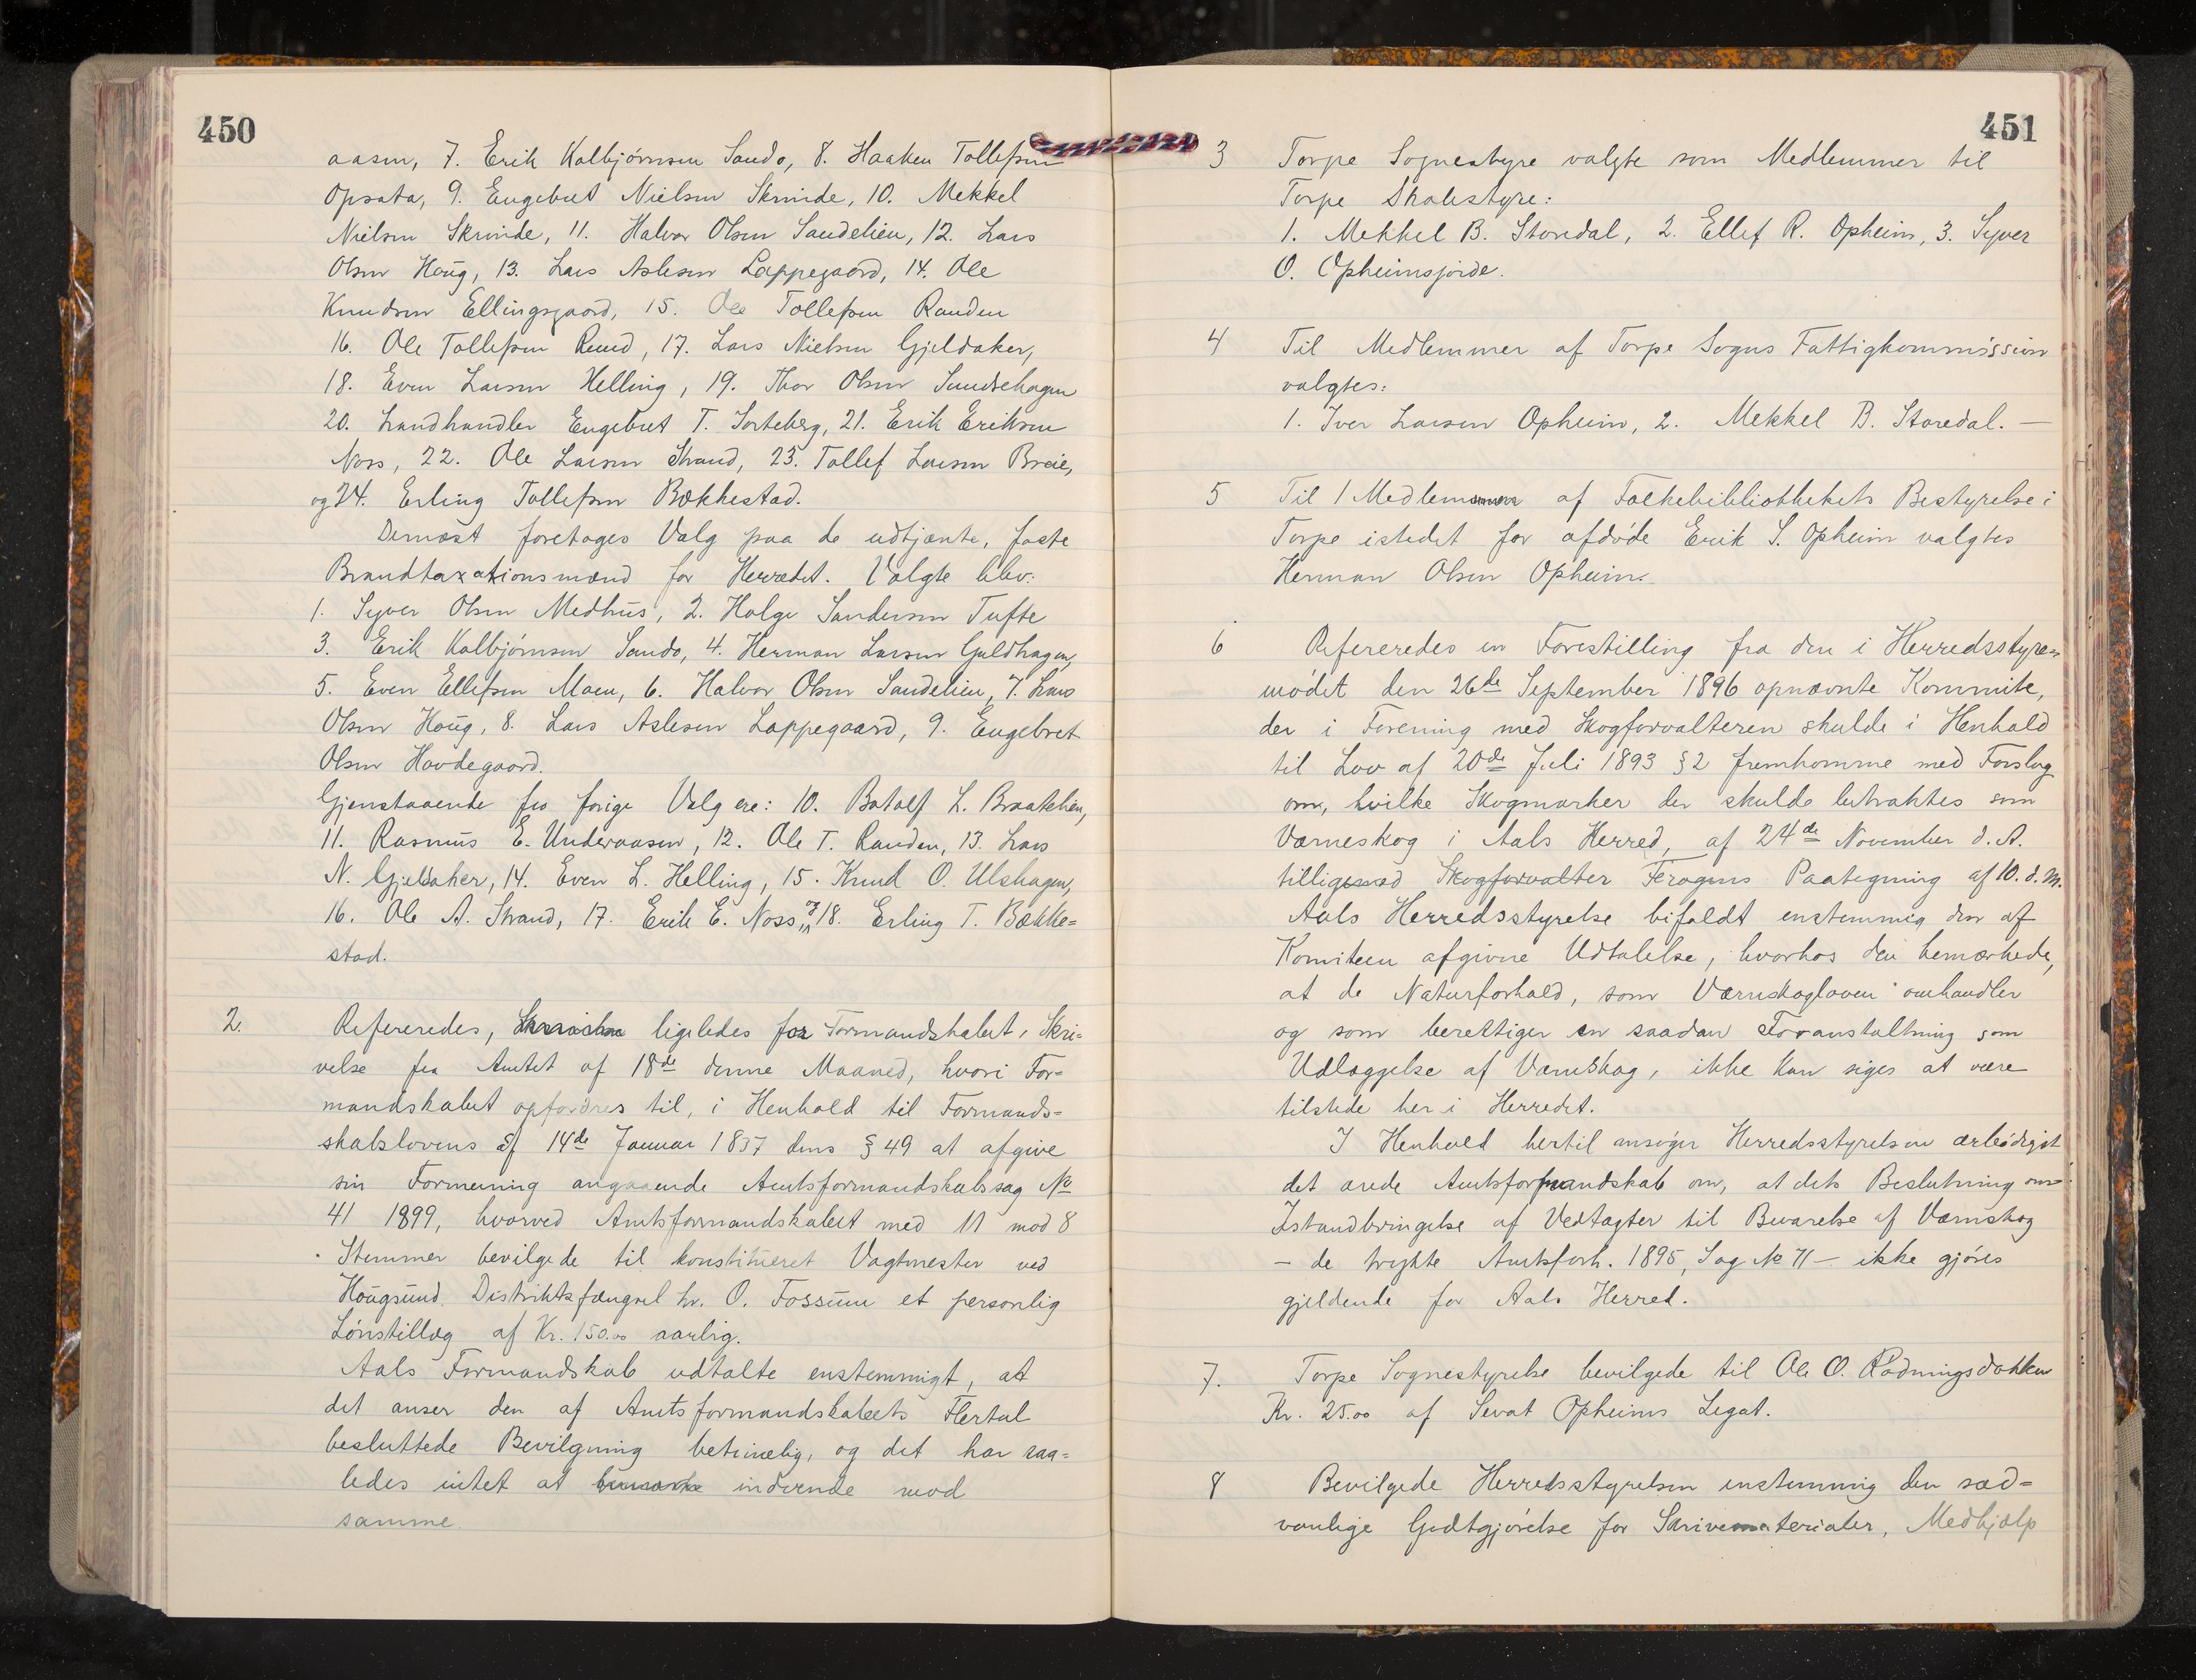 450
aasen, 7. Erik Kolbjørnsen Sando, 8. Haaken Tollefsen
Opsata, 9. Engebret Nielsen Skrinde, 10. Mekkel
Nielsen Skrinde, 11. Halvor Olsen Sandelien, 12. Lars
Olsen Houg, 13. Lars Aslesen Lappegaard, 14. Ole
Knudsen Ellingsgaard, 15. Ole Tollefsen Randen
16. Ole Tollefsen Ruud, 17. Lars Nielsen Gjeldaker,
18. Even Larsen Helling, 19. Thor Olsen Sundrehagen
20. Landhandler Engebret T. Sorteberg, 21. Erik Eriksen
Noss, 22. Ole Larsen Strand, 23. Tollef Larsen Breie,
og 24. Erling Tollefsen Bækkestad.
Dernæst foretoges Valg paa de udtjente, faste
Brandtaxationsmænd for Herredet. Valgte blev:
1. Syver Olsen Medhus, 2. Holge Sandersen Tufte
3. Erik Kolbjørnsen Sando, 4. Herman Larsen Guldhagen,
5. Even Ellefsen Moen, 6. Halvor Olsen Sandelien, 7. Lars
Olsen Houg, 8. Lars Aslesen Lappegaard, 9. Engebret
Olsen Hovdegaard.
Gjenstaaende fra forige Valg ere: 10. Botolf L. Braatelien,
11. Rasmus E. Underaasen, 12. Ole T. Randen, 13. Lars
N. Gjeldaker, 14. Even L. Helling, 15. Knud O. Ulshagen,
16. Ole A. Strand, 17. Erik E. Noss, 18. Erling T. Bække=
stad.
2. Refereredes, ligeledes for Formandskabet, Skri=
velse fra Amtet af 18de denne Maaned, hvori For=
mandskabet opfordres til, i Henhold til Formands=
skabslovens af 14de Januar 1837 dens § 49 at afgive
sin Formening angaaende Amtsformandskabssag No
41 1899, hvorved Amtsformandskabet med 11 mod 8
Stemmer bevilgede til konstitueret Vagtmester ved
Hougsund Distriktsfængsel hr. O. Fossum et personlig
Lønstillæg af Kr. 150.00 aarlig.
Aals Formandskab udtalte enstemmigt, at
det anser den af Amtsformandskabets Flertal
besluttede Bevilgning betimelig, og det har saa=
ledes intet at bemærke indvende mod
samme.
451
3 Torpe Sognestyre valgte som Medlemmer til
Torpe Skolestyre:
1. Mekkel B. Storedal, 2. Ellef R. Opheim, 3. Syver
O. Opheimsjorde.
4 Til Medlemmer af Torpe Sogns Fattigkommission
valgtes:
1. Iver Larsen Opheim, 2. Mekkel B. Storedal. —
5 Til 1 Medlem af Folkebibliothekets Bestyrelse i
Torpe istedet for afdøde Erik S. Opheim valgtes
Herman Olsen Opheim.
6 Refereredes en Forestilling fra den i Herredsstyre=
mødet den 26de September 1896 opnævnte Kommite,
der i Forening med Skogforvalteren skulde i Henhold
til Lov af 20de Juli 1893 § 2 fremkomme med Forslag
om, hvilke Skogmarker der skulde betraktes som
Værneskog i Aals Herred, af 24de November d. A.
tilligemed Skogforvalter Feragens Paategning af 10. d. M.
Aals Herredsstyrelse bifaldt enstemmig den af
Komiteen afgivne Udtalelse, hvorhos den bemærkede,
at de Naturforhold, som Værnskogloven omhandler
og som berettiger en saadan Foranstaltning som
Udlæggelse af Værnskog, ikke kan siges at være
tilstede her i Herredet.
I Henhold hertil ansøger Herredsstyrelsen ærbødigst
det ærede Amtsformandskab om, at dets Beslutning om
Istandbringelse af Vedtægter til Bevarelse af Værnskog
— de trykte Amtsforh. 1895, Sag No 71 — ikke gjøres
gjeldende for Aals Herred.
7. Torpe Sognestyrelse bevilgede til Ole O. Rødningsdokken
Kr. 25.00 af Sevat Opheims Legat.
8 Bevilgede Herredsstyrelsen enstemmig den sæd=
vanlige Godtgjørelse for Skrivematerialer, Medhjælp